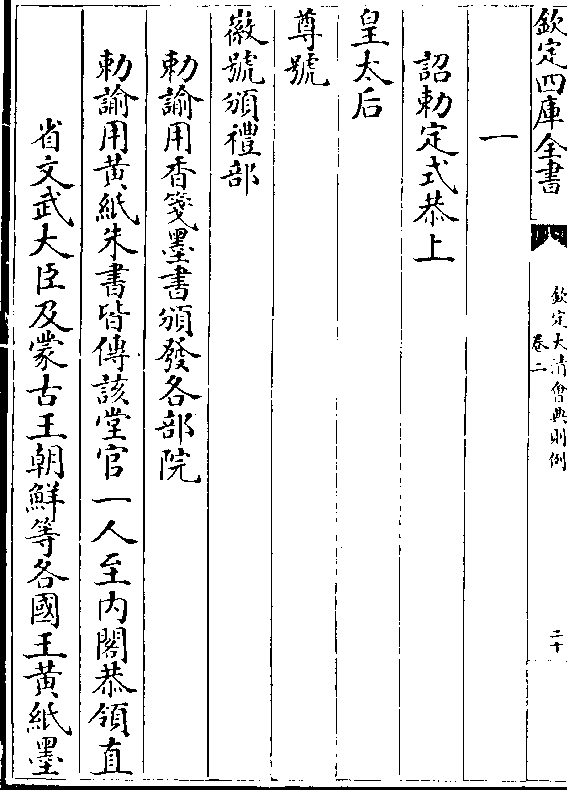 欽定四庫全書
欽定大清會典則例
卷二
二十
一
詔勅定式恭上
皇太后
尊號
徽號頒禮部
勅諭用香箋墨書頒發各部院
勅諭用黃紙朱書皆傳該堂官一人至內閣恭領直
省文武大臣及蒙古王朝鮮等各國王黃紙墨